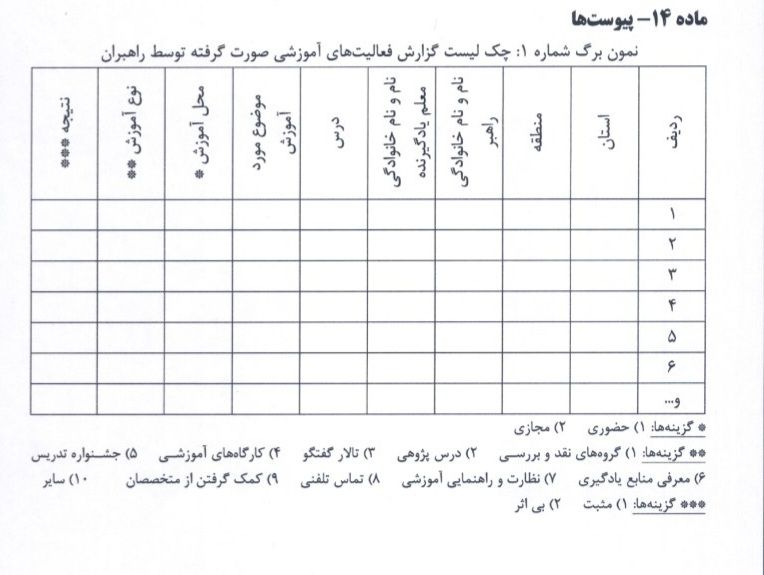 ماده ۱۴- پیوست‌ها
نمون برگ شماره ۱: چک لیست گزارش فعالیت‌های آموزشی صورت گرفته توسط راهبران
ردیف
استان
منطقه
نام و نام خانوادگی
راهبر
نام و نام خانوادگی
معلم یادگیرنده
درس
موضوع مورد
آموزش
محل آموزش *
نوع آموزش **
نتیجه ***
۱
۲
۳
۴
۵
۶
و...
* گزینه‌ها: ۱) حضوری ۲) مجازی
** گزینه‌ها: ۱) گروه‌های نقد و بررسی ۲) درس پژوهی ۳) تالار گفتگو ۴) کارگاه‌های آموزشی ۵) جشنواره تدریس
۶) معرفی منابع یادگیری ۷) نظارت و راهنمایی آموزشی ۸) تماس تلفنی ۹) کمک گرفتن از متخصصان ۱۰) سایر
*** گزینه‌ها: ۱) مثبت ۲) بی اثر